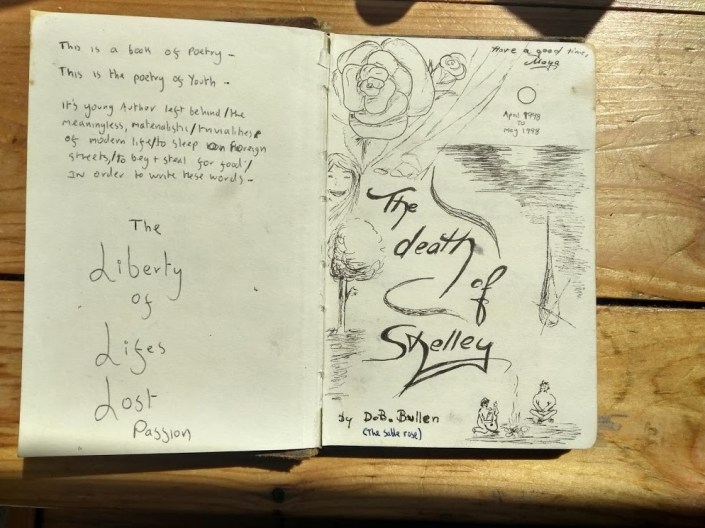 This is a book of Poetry -
This is the poetry of Youth -
It's young Author left behind/the
meaningless, materialistic/trivialities
of modern life/to sleep on Foreign
streets/to beg + steal for food/
in order to write these words -
The
Liberty
of
Lifes
Lost
Passion
Have a good time,
April 1998
TO
May 1998
The
death
of
Shelley
by D.B. Bullen
(The sable rose)